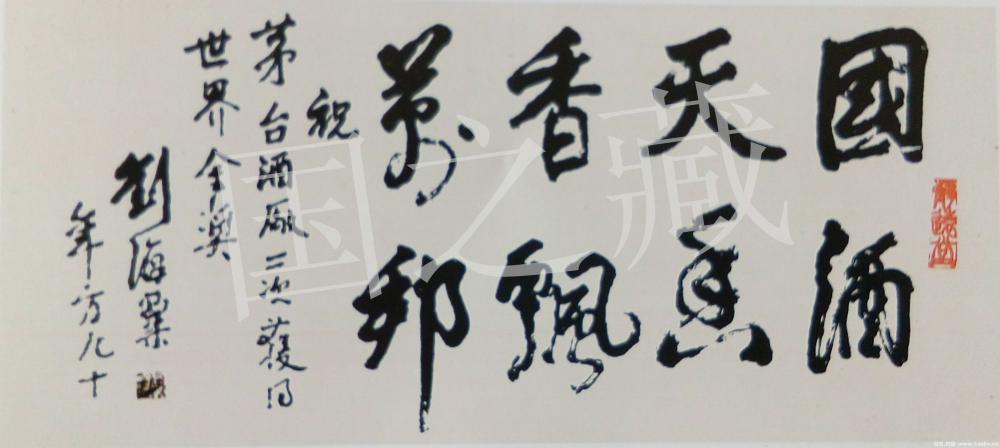 國酒
天香
香飄
萬邦
祝
茅台酒厰三次獲得
世界金獎
劉海粟
年方九十
国之藏